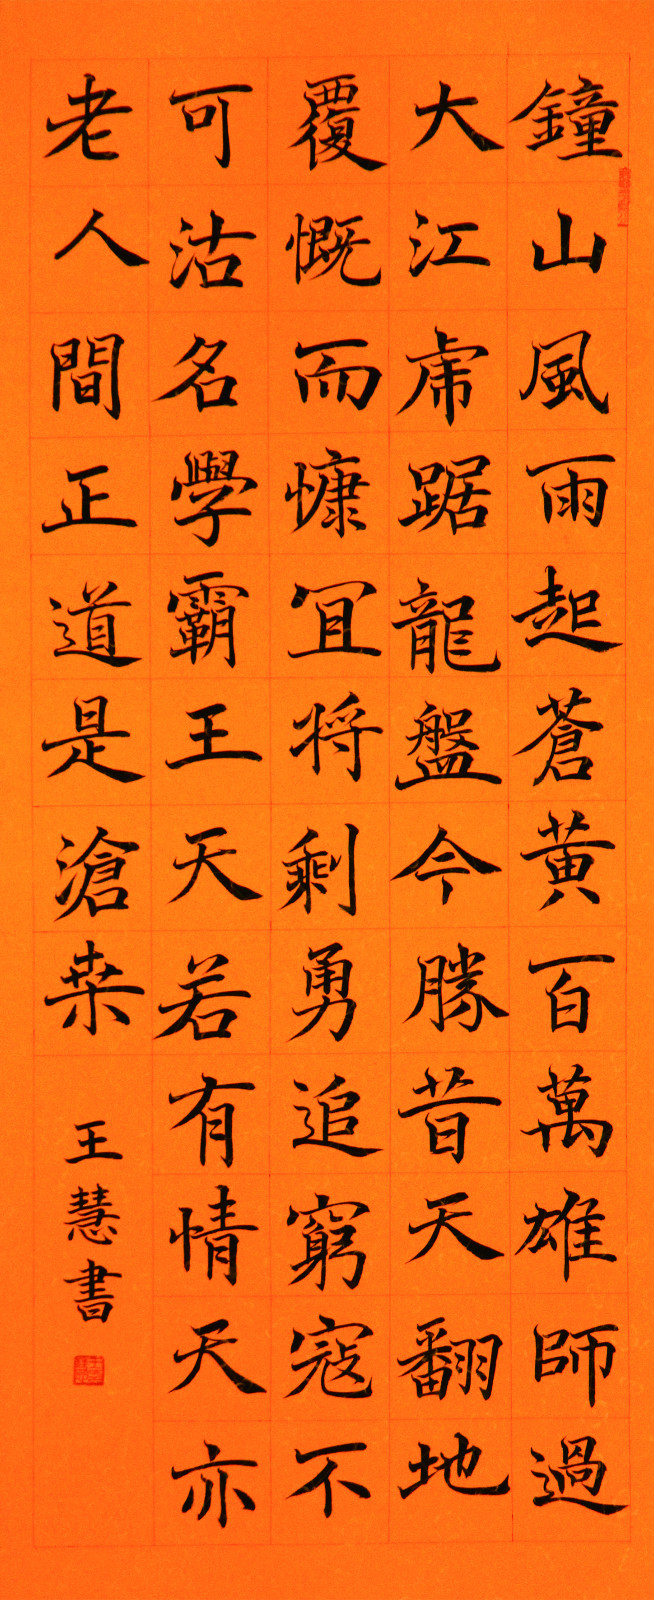 鐘山風雨起蒼黃百萬雄師過
大江虎踞龍盤今勝昔天翻地
覆慨而慷宜將剩勇追窮寇不
可沽名學霸王天若有情天亦
老人間正道是滄桑
王慧書